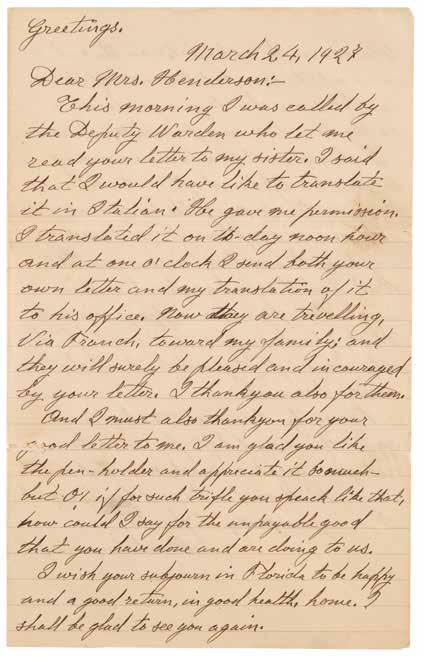 Greetings.
March 24, 1927
Dear Mrs. Henderson:-
This morning I was called by
the Deputy Warden who let me
read your letter to my sister. I said
that I would have like to translate
it in Italian. He gave me permission.
I translated it on to-day noon hour
and at one o'clock I send both your
own letter and my translation of it
to his office. Now they are trivelling,
via Franch, toward my family; and
they will surely be pleased and incouraged
by your letter. I thank you also for them.
And I must also thank you for your
good letter to me. I am glad you like
the pen-holder and appreciate it so much-
but O! if for such trifle you speack like that,
how could I say for the unpayable good
that you have done and are doing to us.
I wish your subjourn in Florida to be happy
and a good return, in good health, home. I
shall be glad to see you again.